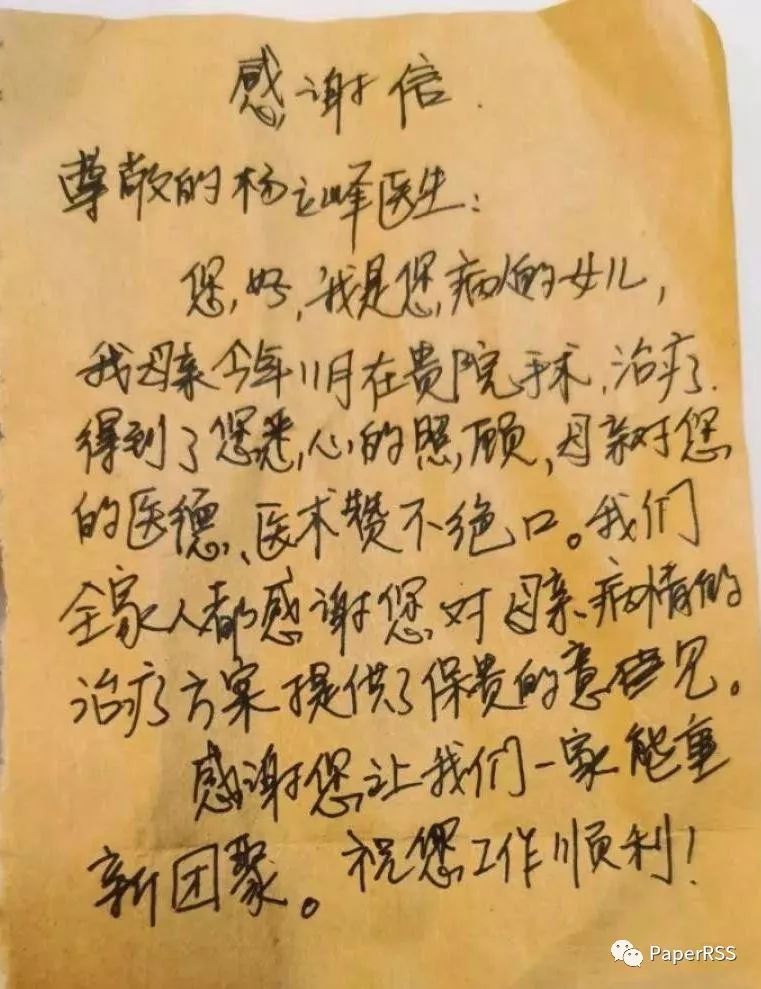 感谢信.
尊敬的杨立峰医生:
您好,我是您病人的女儿,
我母亲今年11月在贵院手术,治疗.
得到了您悉心的照顾,母亲对您
的医德、医术赞不绝口。我们
全家人都感谢您对母亲病情的
治疗方案提供了保贵的意见。
感谢您让我们一家能重
新团聚。祝您工作顺利!
PaperRSS